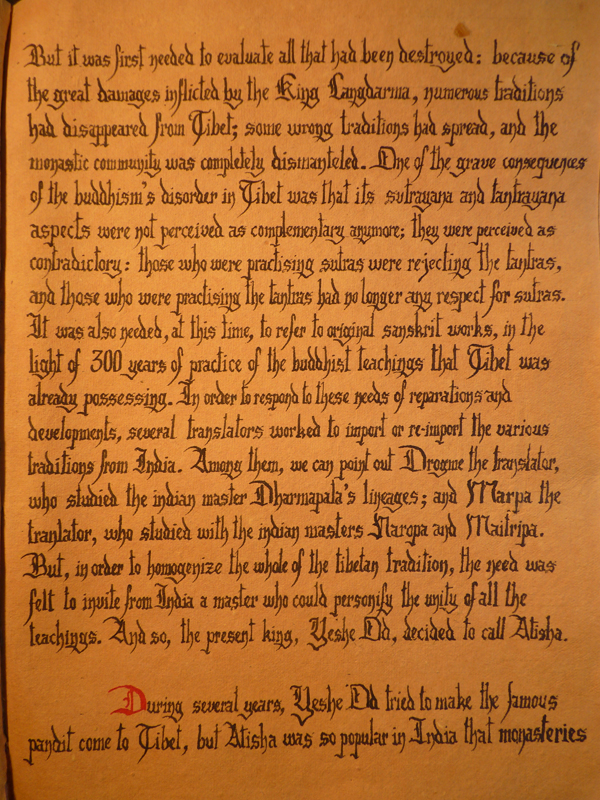 But it was first needed to evaluate all that had been destroyed: because of
the great damages inflicted by the King Langdarma, numerous traditions
had disappeared from Tibet; some wrong traditions had spread, and the
monastic community was completely dismanteled. One of the grave consequences
of the buddhism's disorder in Tibet was that its sutrayana and tantrayana
aspects were not perceived as complementary anymore; they were perceived as
contradictory: those who were practising sutras were rejecting the tantras,
and those who were practising the tantras had no longer any respect for sutras.
It was also needed, at this time, to refer to original sanskrit works, in the
light of 300 years of practice of the buddhist teachings that Tibet was
already possessing. In order to respond to these needs of reparations and
developments, several translators worked to import or re-import the various
traditions from India. Among them, we can point out Drogme the translator,
who studied the indian master Dharmapala's lineages; and Marpa the
tranlator, who studied with the indian masters Naropa and Maitripa.
But, in order to homogenize the whole of the tibetan tradition, the need was
felt to invite from India a master who could personify the unity of all the
teachings. And so, the present king, Yeshe Od, decided to call Atisha.
During several years, Yeshe Od tried to make the famous
pandit come to Tibet, but Atisha was so popular in India that monasteries